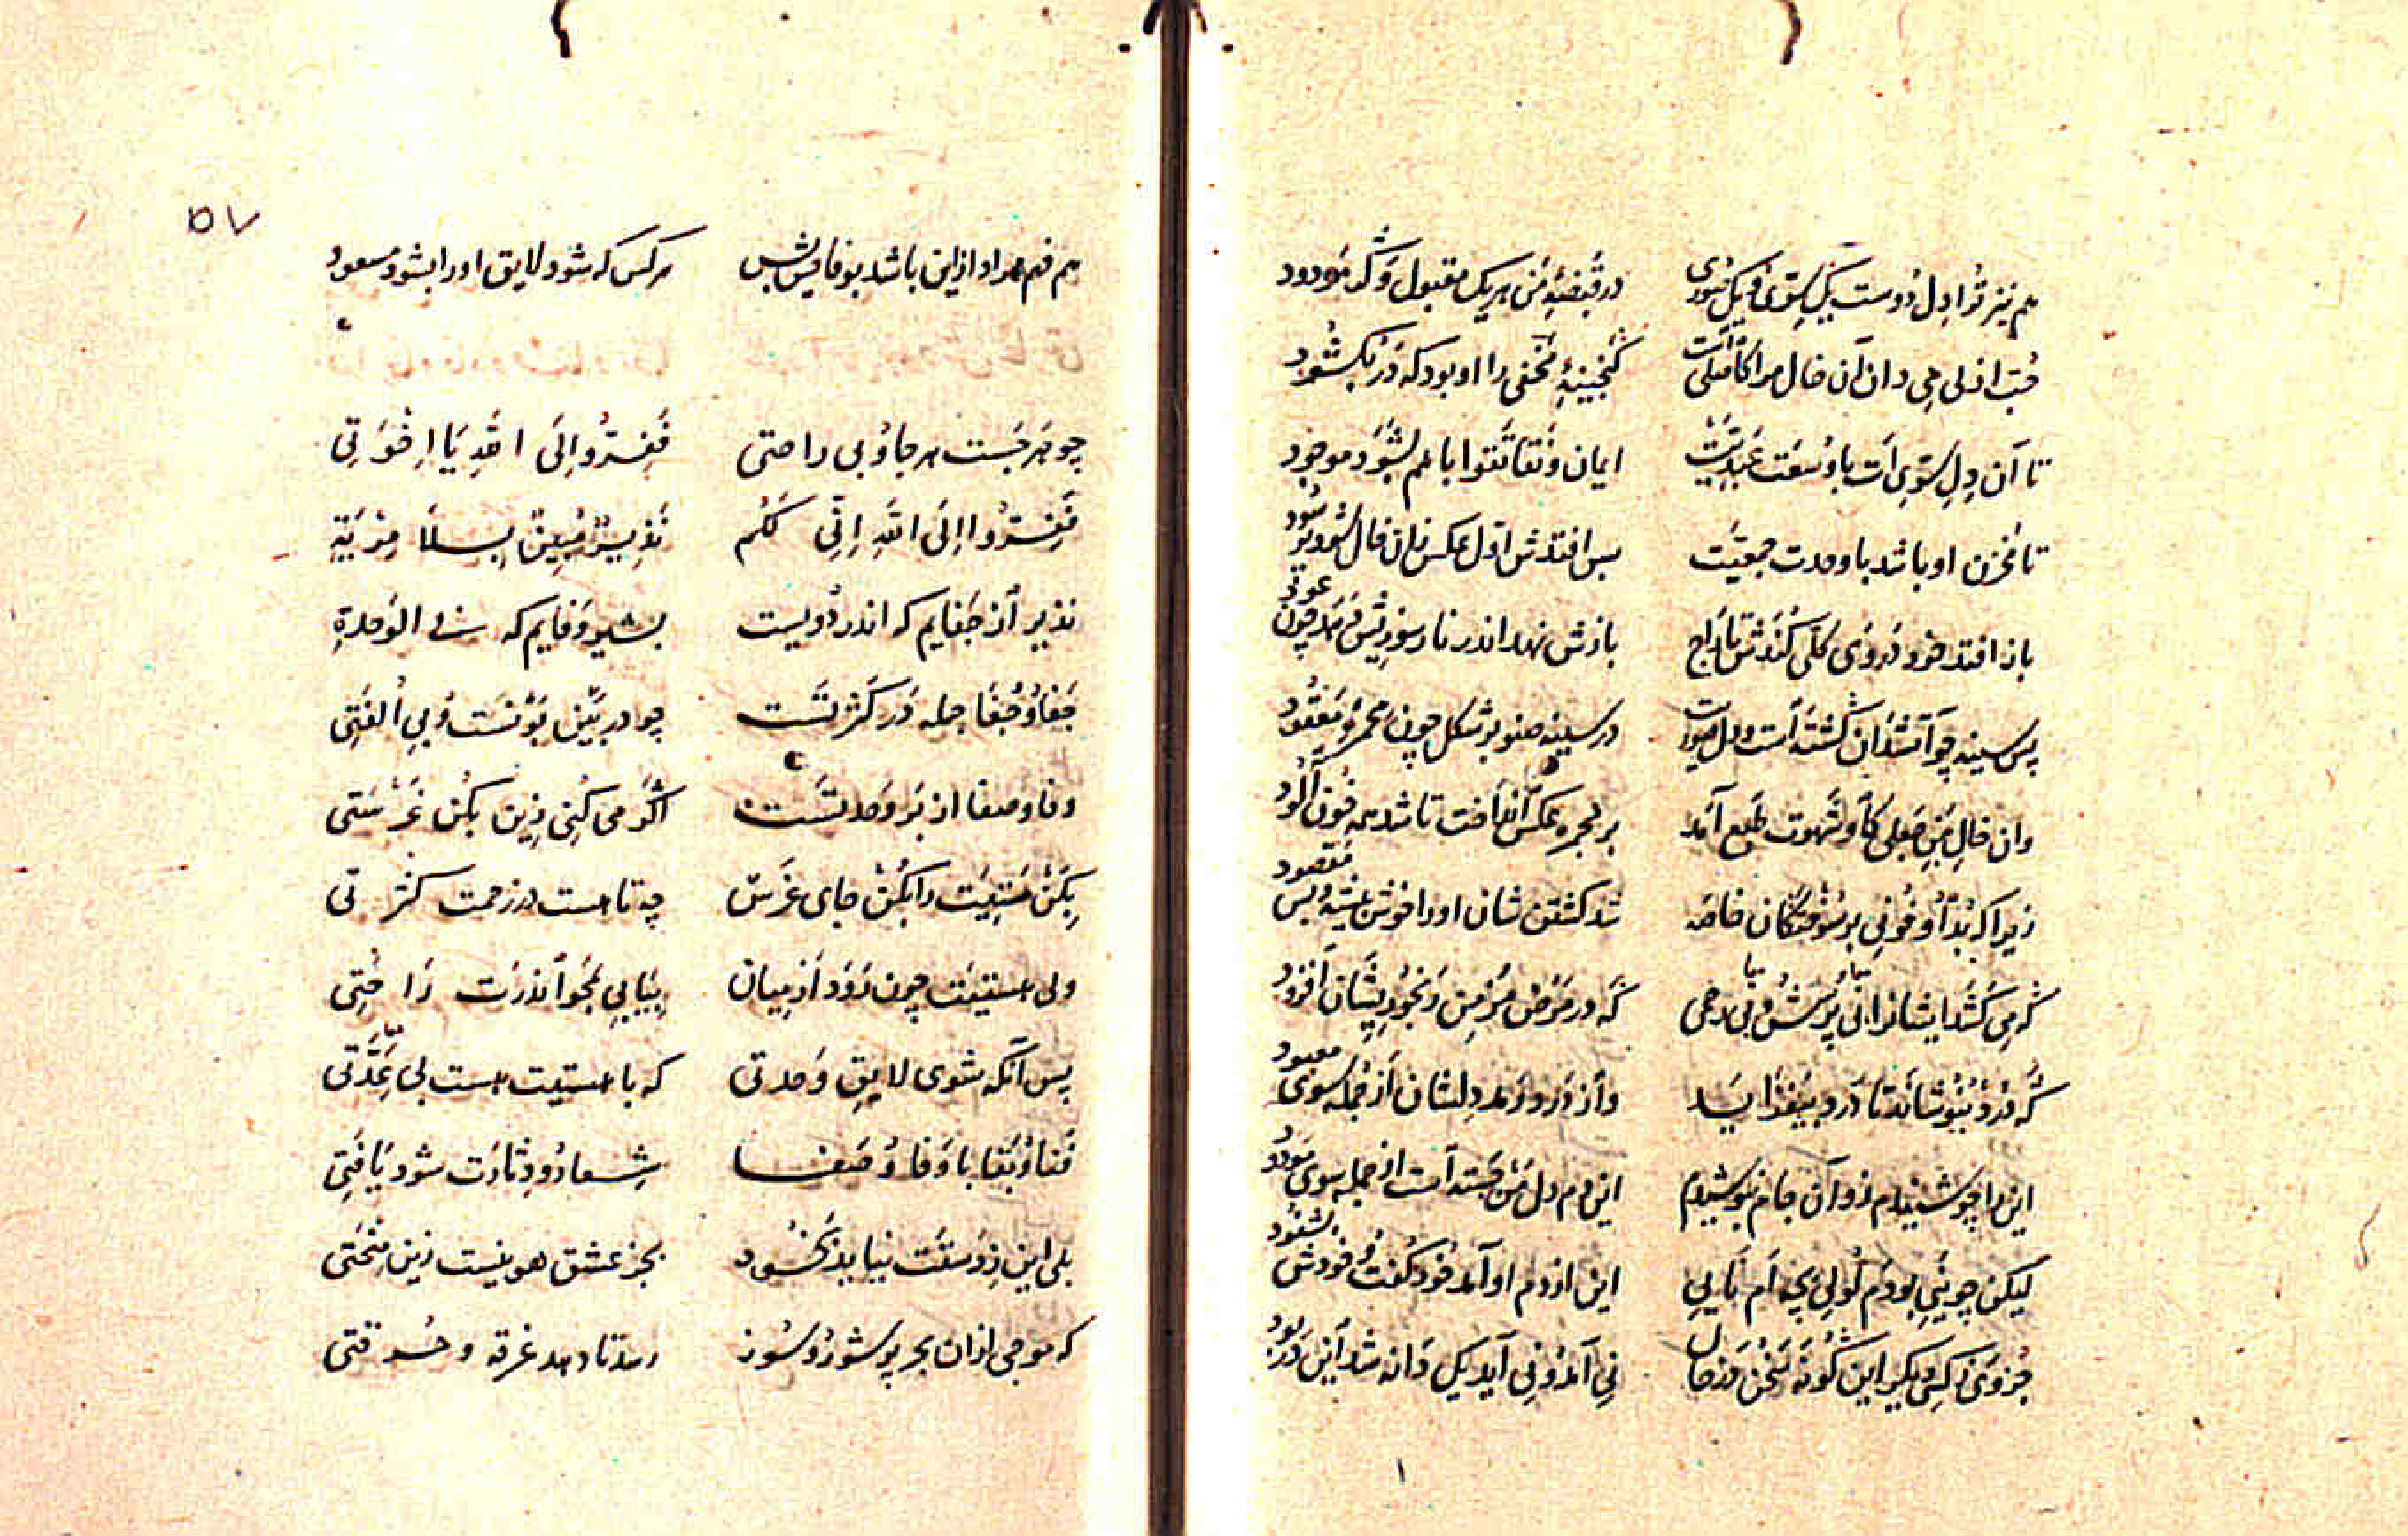 هم نیز ترا دل دوست یک سوی و یک صوری در قبضهٔ من هر یک مقبول وگر مردود
حب ازلی می دان آن خال مرا کامل است گنجینهٔ مخفی را او بود که در بگشود
تا آن دل سوی ات با وسعت عبدیت ایمان و تقا نقوا با هم بشود موجود
تا مخزن او باشد با وحدت جمعیت بس افتدش اول عکس زان خال شود بر سود
باز افتد خود در وی کلی کندش تاراج بازش نهد اندر نار سوزیش نهد چون عود
پس سینه چو آتشدان گشته است و دل صورت در سینه صنوبر شکل چون مجمره مفقود
وان خال من جعلی کاو شهوت طبع آمد بر مجمره عکس انداخت تا شد همه خون آلود
زیرا که بد او خونی بر سوختگان خاصه شد کشتن شان او را خوش عیشه بس مقصود
که می کشد ایشانرا بی پرسش و بی رحمی که در مرض مزمن رنجور بیشان افزود
که درد بنوشاند تا درد بیفزاید واز درد رمد دلشان از جمله سوی معبود
این را چو شنیدم زو آن جام بنوشیدم این دم دل من جسته است از جمله سوی مودود
لیکن چو نیی بودم لولی بچه ام نایی این از دم او آمد خود گفت و خودش بشنود
جز وی نه کسی دیگر این گونه سخن در حال نی آمد و نی آید یک دانه شد این در بود
۵۷
هم فهم مراد از این باشد بوفایش بس هر کس که شود لایق او را بشود مسعود
چو هر جست هر جا و بی راحتی فَفِرُّوا اِلَی اللهِ یَا اِخْوَتِی
فَفِرُّوا اِلَی اللهِ اِنِّی لَکُم نَذِیرٌ مُبِینٌ بِلا مِرْیَةِ
نذیر از جفایم که اندر دویست بشیر وفایم که فی الوَحدةِ
جفا و جفا جمله در کثرتست چو در بین بونست و بی الفتی
وفا و صفا از بر وحدتست اگر می کنی زین بکن غرستی
بکن هستیت را بکن جای غرس چه تا هست در زحمت کثرتی
ولی هستیت چون رود از میان بیابی بجو اندرت راحتی
پس آنگه شوی لایق وحدتی که با هستیت هست بی عدتی
فنا و بقا با وفا و صفا شعار و دثارت شود یافتی
بلی این ز وسعت نیاید بخود بجز عشق هو نیست زین منحتی
که موجی از آن بحر پر شور و سوز رسد تا دهد غرقه و حرقتی